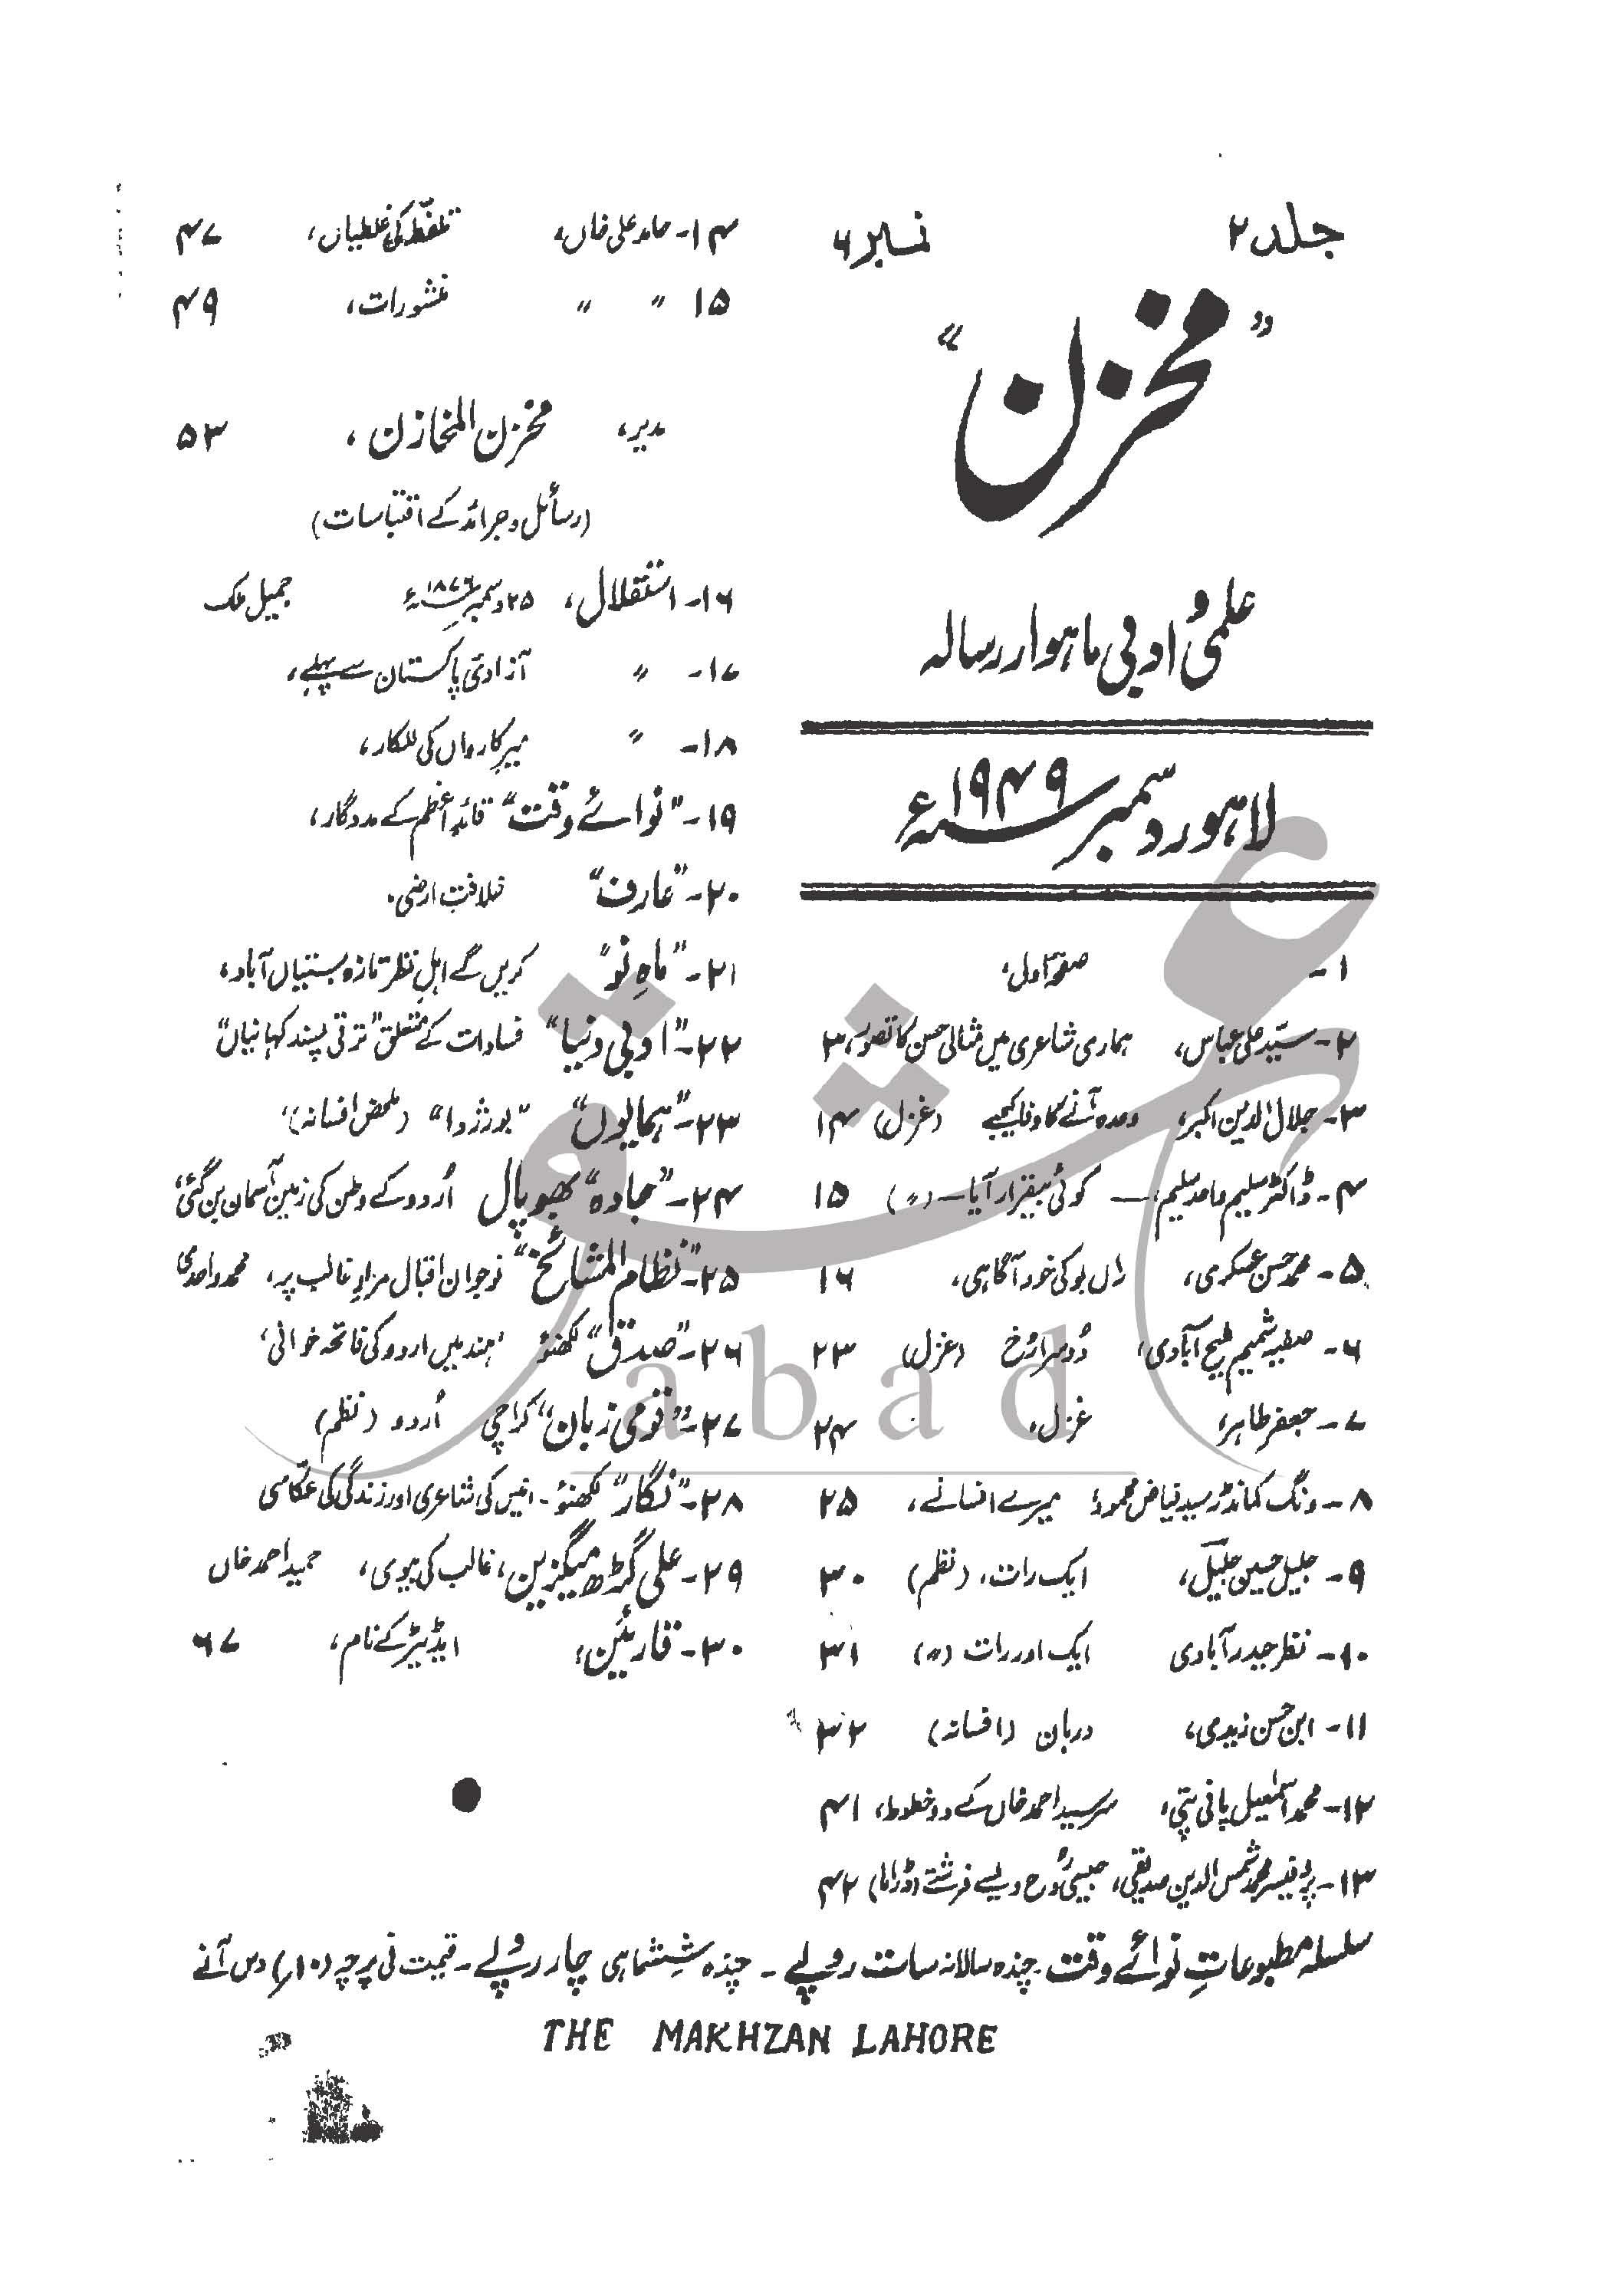 جلد ۲ نمبر ۶
”مخزن“
علمی و ادبی ماہوار رسالہ
لاہور دسمبر ۱۹۴۹ء
۱- صفحۂ اول،
۲- سیّد علی عباس، ہماری شاعری میں مثالی حسن کا تصور، ۳
۳- جلال الدین اکبر، وعدہ آنے کا وفا کیجیے (غزل) ۱۴
۴- ڈاکٹر سلیم واحد سلیم، — کوئی بیقرار آیا — (〃) ۱۵
۵- محمد حسن عسکری، راں بو کی خود آگاہی، ۱۶
۶- صفیہ شمیم ملیح آبادی، دُوسرا رُخ (غزل) ۲۳
۷- جعفر طاہر، غزل، ۲۴
۸- ونگ کمانڈر سید فیاض محمود، میرے افسانے، ۲۵
۹- جلیل حسین جلیلؔ، ایک رات، (نظم) ۳۰
۱۰- نظر حیدرآبادی ایک اور رات (〃) ۳۱
۱۱- ابن حسن زیدی، دربان (افسانہ) ۳۲
۱۲- محمد اسمٰعیل پانی پتی، سرسید احمد خاں کے دو خطوط، ۴۱
۱۳- پروفیسر محمد شمس الدین صدیقی، جیسی رُوح ویسے فرشتے (ڈراما) ۴۲
۱۴- حامد علی خاں، تلفّظ کی غلطیاں، ۴۷
۱۵ 〃 〃 منشورات، ۴۹
مدیر، مخزن المخازن، ۵۳
(رسائل و جرائد کے اقتباسات)
۱۶- استقلال، ۲۵ دسمبر ۱۸۷۶ء جمیل ملک
۱۷- 〃 آزادیٔ پاکستان سے پہلے،
۱۸- 〃 میرِ کارواں کی للکار،
۱۹- ”نوائے وقت“ قائدِ اعظم کے مددگار،
۲۰- ”عارف“ خلافتِ ارضی.
۲۱- ”ماہِ نو“ کریں گے اہلِ نظر تازہ بستیاں آباد،
۲۲- ”ادبی دنیا“ فسادات کے متعلق ”ترقی پسند کہانیاں“
۲۳- ”ہمایوں“ ”بورژوا“ (ملخص افسانہ)،
۲۴- ”جادہ“ بھوپال اُردو کے وطن کی زمین آسمان بن گئی،
۲۵- ”نظام المشائخ“ نوجوان اقبال مزارِ غالب پر، محمد واحدی
۲۶- ”صدق“ لکھنؤ ’ہند میں اردو کی فاتحہ خوانی‘
۲۷- ”قومی زبان“ کراچی اُردو (نظم)
۲۸- ”نگار“ لکھنؤ - انیس کی شاعری اور زندگی کی عکّاسی
۲۹- علی گڑھ میگزین، غالب کی بیوی، حمید احمد خاں
۳۰- قارئین، ایڈیٹر کے نام، ۶۷
سلسلہ مطبوعاتِ نوائے وقت. چندہ سالانہ سات روپے - چندہ ششماہی چار روپے - قیمت فی پرچہ (۱۰؍) دس آنے
THE MAKHZAN LAHORE
عشق
abad